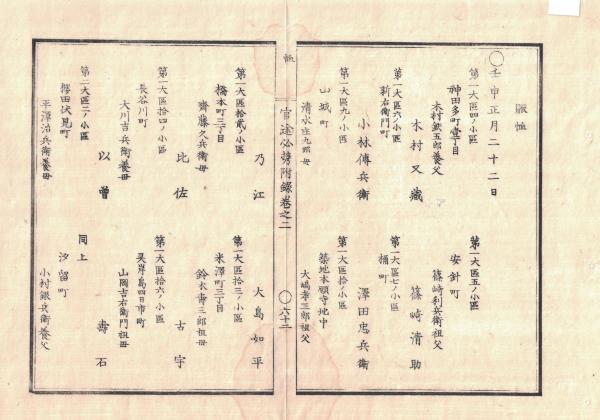 賑恤
○壬申正月二十二日
第一大區四ノ小區
神田多町壹丁目
木村銀五郎養父
木村又藏
第一大區五ノ小區
安針町
篠崎利兵衛祖父
篠崎清助
第一大區六ノ小區
新右衛門町
小林傳兵衛
第一大區七ノ小區
桶町
澤田忠兵衛
第一大區九ノ小區
山城町
清水庄九郎母
第一大區十ノ小區
築地本願寺地中
大嶋幸三郎祖父
賑恤
官途必携附錄卷之二
○六十二
乃江
大島如平
第一大區拾貳ノ小區
橋本町三丁目
齋藤久兵衛母
比佐
第一大區拾三ノ小區
米澤町三丁目
鈴木壽三郎祖母
古宇
第一大區拾四ノ小區
長谷川町
大川吉兵衛養母
以曽
第一大區拾六ノ小區
靈岸島四日市町
山岡吉右衛門祖母
壽石
第二大區二ノ小區
櫻田伏見町
平澤治兵衛養母
同上
汐留町
小村銀兵衛養父